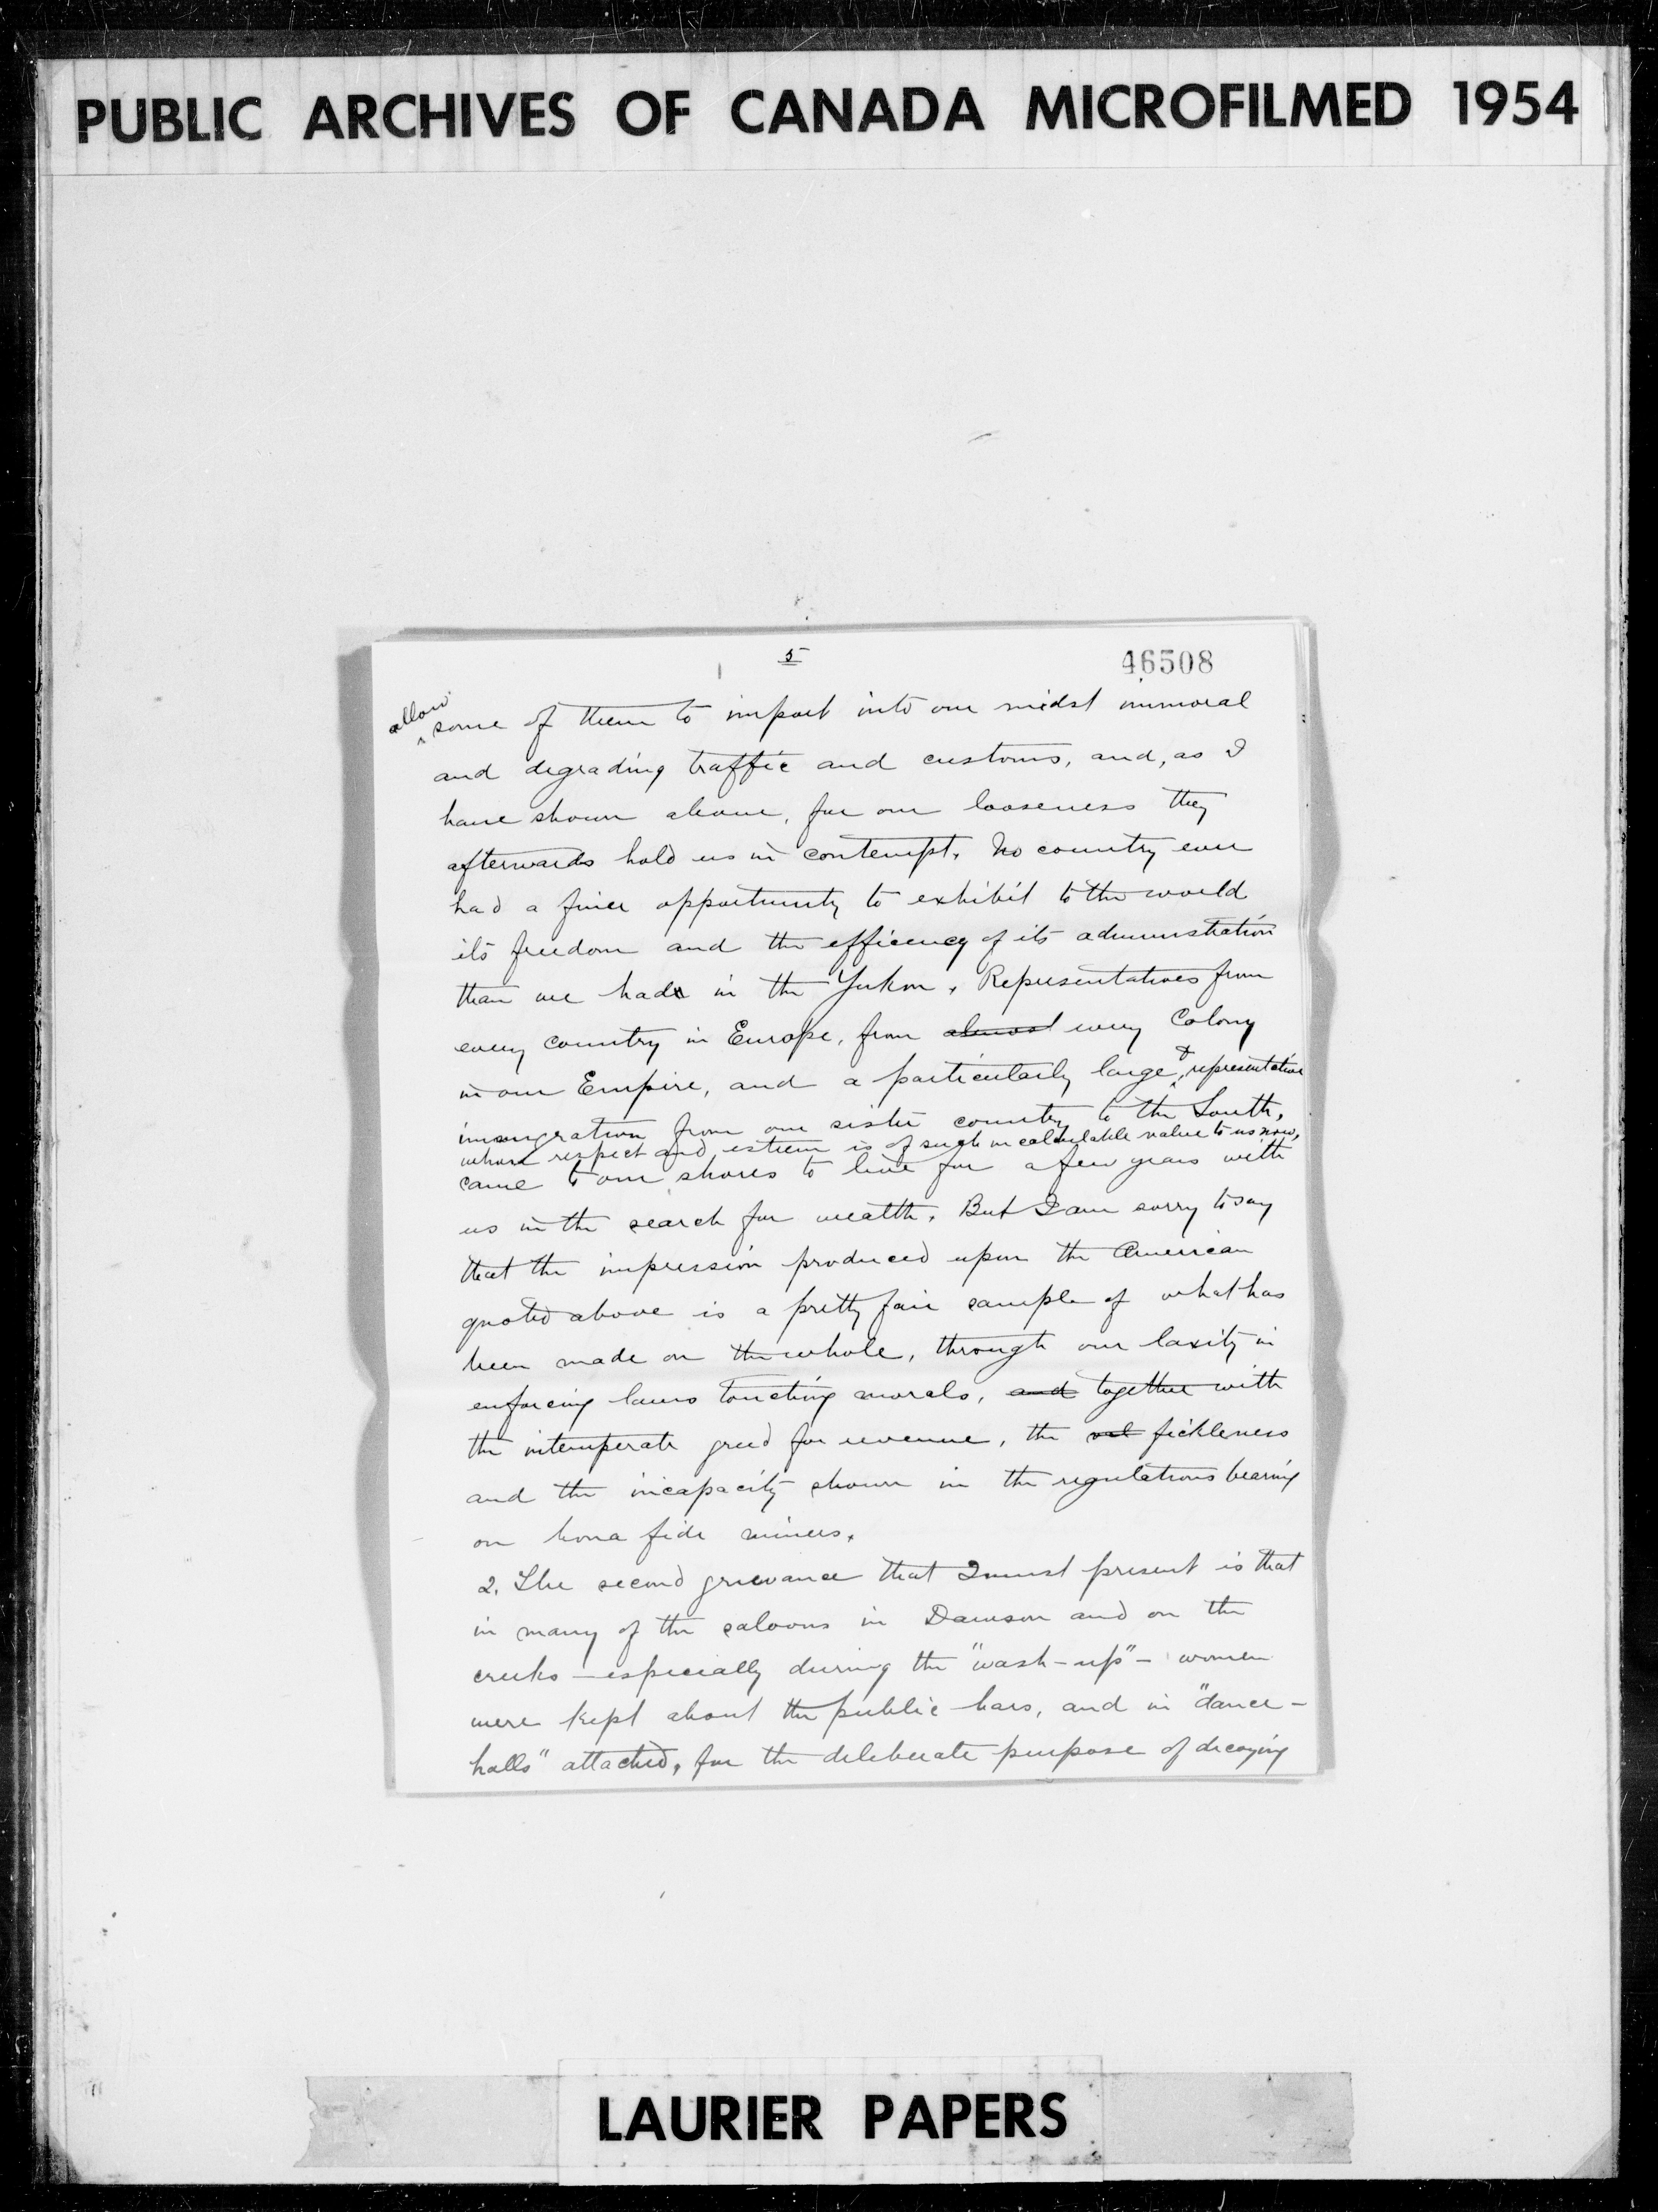 PUBLIC ARCHIVES OF CANADA MICROFILMED 1954
5
46508
allow
some of them to import into our midst immoral
and degrading traffic and customs, and, as I
have shown above, for our looseness they
afterwards hold us in contempt. No country ever
had a finer opportunity to exhibit to the world
its freedom and the efficency of its administration
than we had in the Yukon. Representatives from
every country in Europe, from almost every Colony
in our Empire, and a particularly large & representative
immigration from our sister country to the South,
whose respect and esteem is of such incalculable value to us now,
came to our shores to live for a few years with
us in the search for wealth. But I am sorry to say
that the impression produced upon the American
quoted above is a pretty fair sample of what has
been made on the whole, through our laxity in
enforcing laws touching morals, and together with
the intemperate greed for revenue, the fickleness
and the incapacity shown in the regulations bearing
on bona fide miners.
2. The second grievance that I must present is that
in many of the saloons in Dawson and on the
creeks - especially during the "wash-up" - women
were kept about the public bars, and in "dance-
halls" attached, for the deliberate purpose of decoying
LAURIER PAPERS